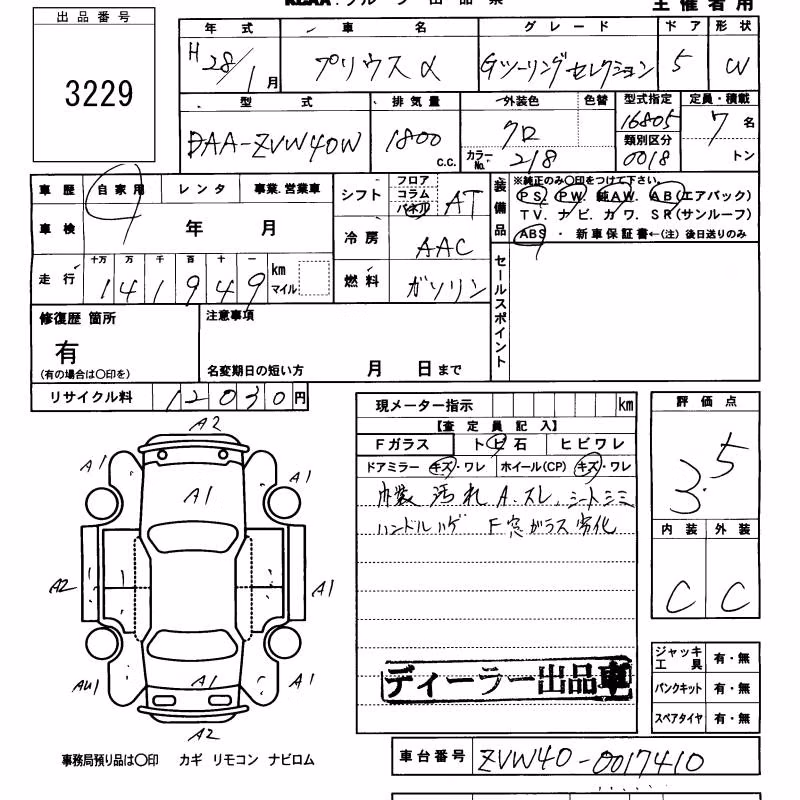 KCAA グループ 出 品 票 主 催 者 用
出 品 番 号
3229
年 式 車 名 グ レ ー ド ド ア 形 状
H 28/1 月 プリウスα Gツーリングセレクション 5 W
型 式 排 気 量 外装色 色替 型式指定 定員・積載
DAA-ZVW40W 1800 c.c. クロ 16805 7 名
類別区分
カラーNo. 218 0018 トン
車 歴 自 家 用 レ ン タ 事業.営業車
車 検 年 月
走 行 十万 万 千 百 十 一
1 4 1 9 4 9 km マイル
シフト フロア コラム パネル AT
冷 房 AAC
燃 料 ガソリン
装備品 ※純正のみ○印をつけて下さい。
PS. PW. 純AW. AB(エアバック)
TV. ナビ. カワ. SR(サンルーフ)
ABS ・ 新 車 保 証 書 ←(注) 後日送りのみ
セールスポイント
修復歴 箇所
有
(有の場合は○印を)
注意事項
名変期日の短い方 月 日 まで
リサイクル料 12030 円
A2
A1 A1
A1
A2 A1
AU1 A1 A1
A2
事務局預り品は○印 カギ リモコン ナビロム
現メーター指示 km
【査 定 員 記 入】
Fガラス ト ビ 石 ヒ ビ ワ レ
ドアミラー キズ・ワレ ホイール(CP) キズ・ワレ
内装 汚れ A.スレ、シートシミ
ハンドルハゲ F窓ガラス劣化
ディーラー出品車
車台番号 ZVW40-0017410
評 価 点
3.5
内 装 外 装
C C
ジャッキ工 具 有・無
パンクキット 有・無
スペアタイヤ 有・無